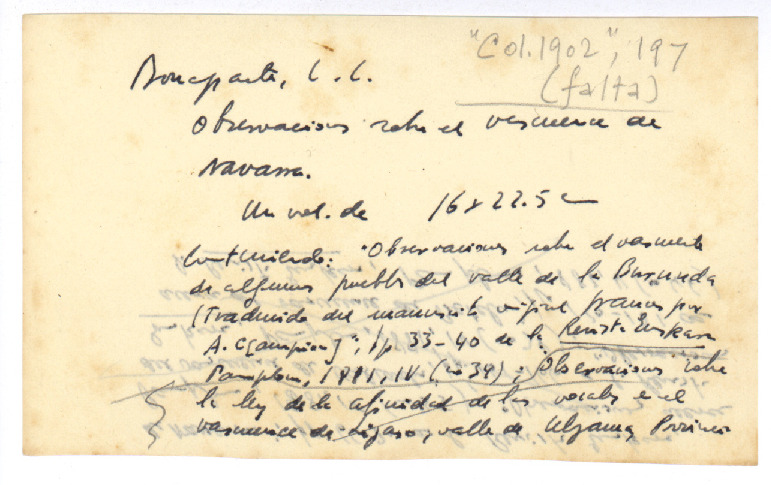 "Col. 1902", 197
(falta)
Bonaparte, L. L.
Observaciones sobre el vascuence de
Navarra.
Un vol. de 16 x 22.5 c
Conteniendo: "Observaciones sobre el vascuence
de algunos pueblos del valle de la Burunda
(Traducido del manuscrito original frances por
A. C[ampion]", pp. 33-40 de la Revista Euskara
Pamplona, 1881, IV (no 34); Observaciones sobre
la ley de la afinidad de las vocales en el
vascuence de Lizaso, valle de Ulzama, Provincia